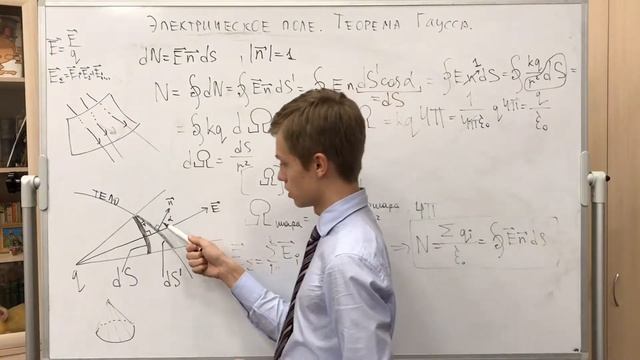 Электрическое поле. Теорема Гаусса.
E⃗ = F⃗/q
E⃗₂ = E⃗₁ + E⃗₂ + E⃗₃...
dN = E⃗n⃗dS , |n⃗| = 1
N = ∮dN = ∮E⃗n⃗dS' = ∮E n dS'cosα = ∮E n dS = ∮kq/r² dS =
= dS
= ∮kq dΩ = kq4π = 1/4πε₀ q4π = q/ε₀
dΩ = dS/r²
Ω шара
шара 4π
N = Σqᵢ/ε₀ = ∮E⃗n⃗dS
тело
n⃗
E⃗
α
q
dS
dS'